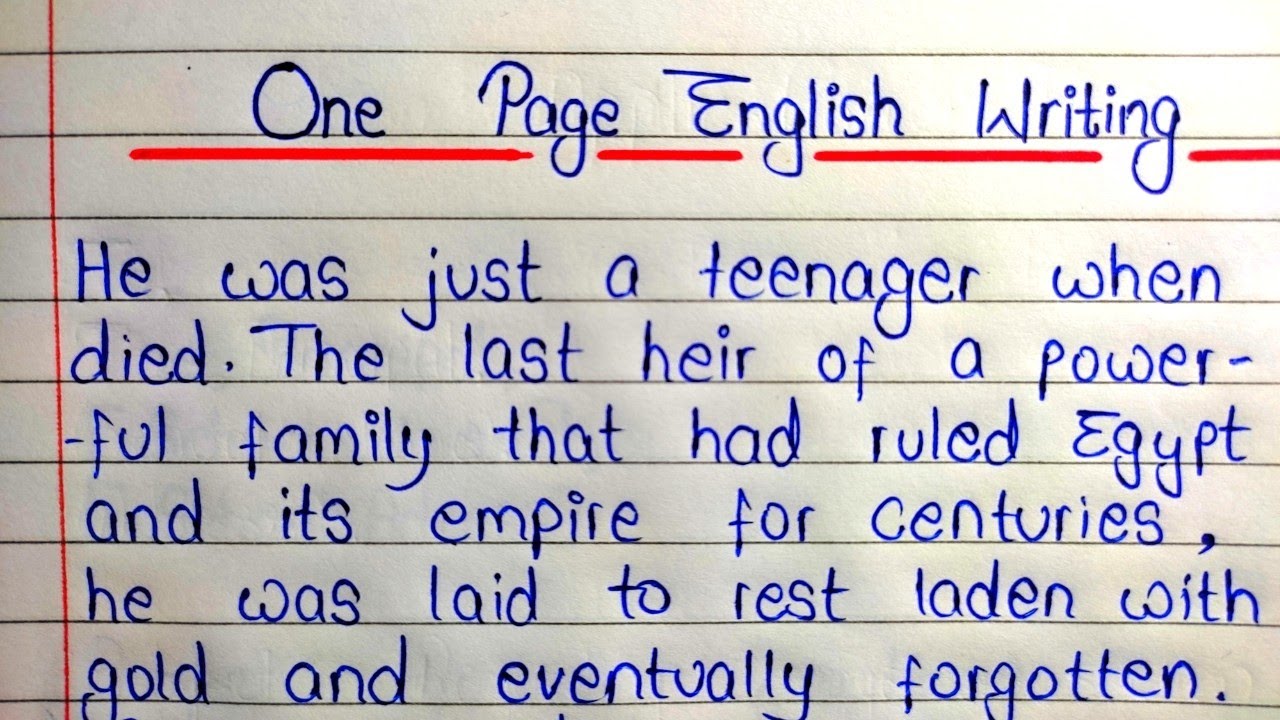 One Page English Writing
He was just a teenager when
died. The last heir of a power-
-ful family that had ruled Egypt
and its empire for centuries,
he was laid to rest laden with
gold and eventually forgotten.